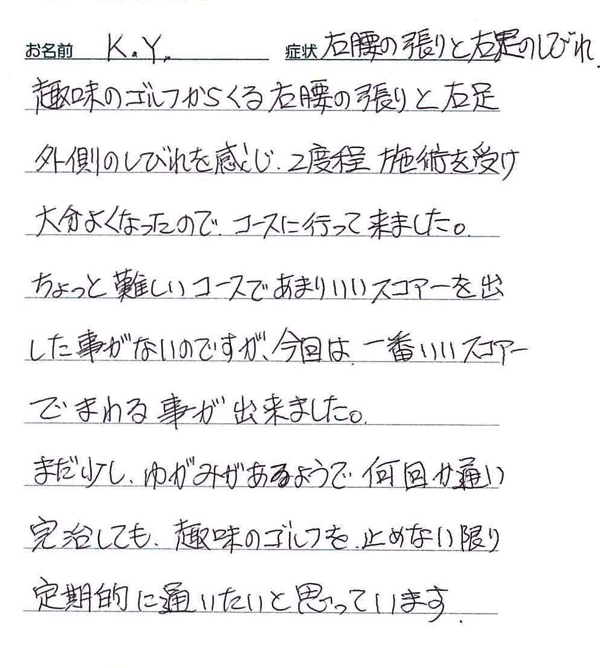 お名前 K.Y. 症状 右腰の張りと右足のしびれ
趣味のゴルフからくる右腰の張りと右足
外側のしびれを感じ、2度程施術を受け
大分よくなったので、コースに行って来ました。
ちょっと難しいコースであまりいいスコアーを出
した事がないのですが、今回は、一番いいスコアー
でまわる事が出来ました。
まだ少し、ゆがみがあるようで、何回か通い
完治しても、趣味のゴルフを、止めない限り
定期的に通いたいと思っています。